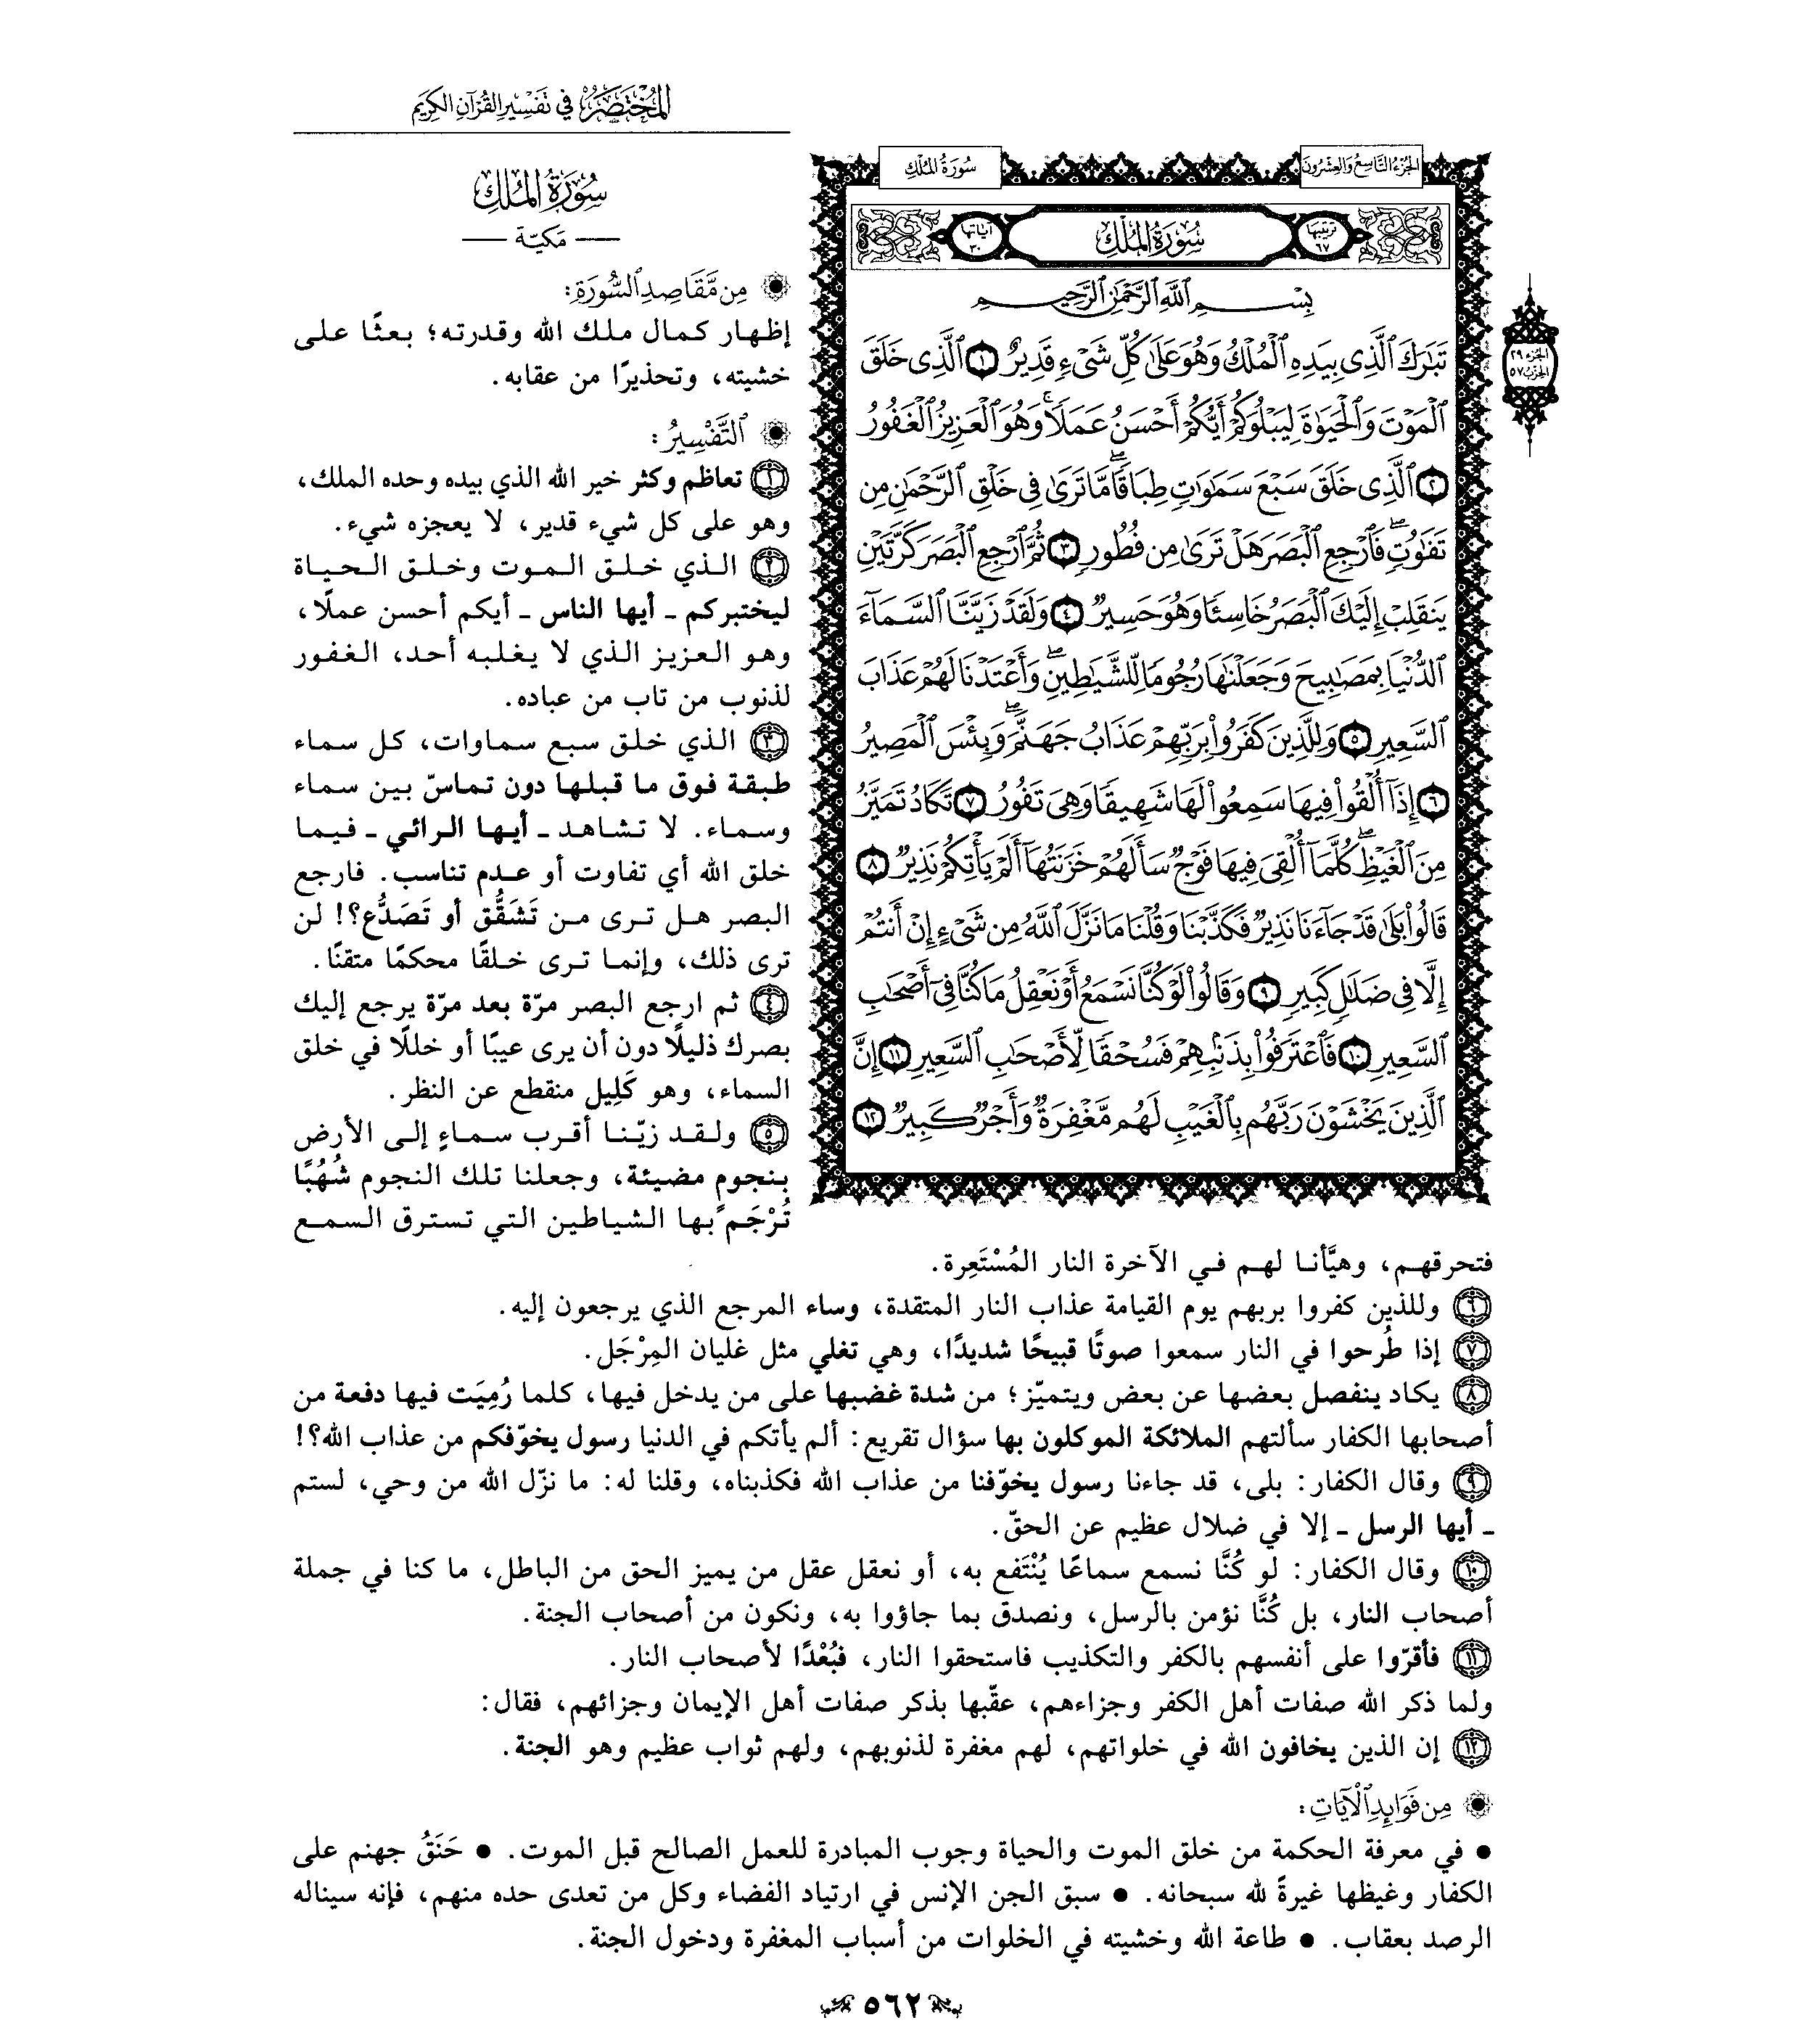 المُخْتَصَرُ فِي تَفْسِيرِ القُرْآنِ الكَرِيمِ
الجُزْءُ التَّاسِعُ وَالعِشْرُونَ
سُورَةُ المُلْكِ
تَرْتِيبُهَا ٦٧
سُورَةُ المُلْكِ
آيَاتُهَا ٣٠
بِسْمِ ٱللَّهِ ٱلرَّحْمَٰنِ ٱلرَّحِيمِ
تَبَٰرَكَ ٱلَّذِى بِيَدِهِ ٱلْمُلْكُ وَهُوَ عَلَىٰ كُلِّ شَىْءٍ قَدِيرٌ ١ ٱلَّذِى خَلَقَ
ٱلْمَوْتَ وَٱلْحَيَوٰةَ لِيَبْلُوَكُمْ أَيُّكُمْ أَحْسَنُ عَمَلًا ۚ وَهُوَ ٱلْعَزِيزُ ٱلْغَفُورُ
٢ ٱلَّذِى خَلَقَ سَبْعَ سَمَٰوَٰتٍ طِبَاقًا ۖ مَّا تَرَىٰ فِى خَلْقِ ٱلرَّحْمَٰنِ مِن
تَفَٰوُتٍ ۖ فَٱرْجِعِ ٱلْبَصَرَ هَلْ تَرَىٰ مِن فُطُورٍ ٣ ثُمَّ ٱرْجِعِ ٱلْبَصَرَ كَرَّتَيْنِ
يَنقَلِبْ إِلَيْكَ ٱلْبَصَرُ خَاسِئًا وَهُوَ حَسِيرٌ ٤ وَلَقَدْ زَيَّنَّا ٱلسَّمَآءَ
ٱلدُّنْيَا بِمَصَٰبِيحَ وَجَعَلْنَٰهَا رُجُومًا لِّلشَّيَٰطِينِ ۖ وَأَعْتَدْنَا لَهُمْ عَذَابَ
ٱلسَّعِيرِ ٥ وَلِلَّذِينَ كَفَرُوا۟ بِرَبِّهِمْ عَذَابُ جَهَنَّمَ ۖ وَبِئْسَ ٱلْمَصِيرُ
٦ إِذَآ أُلْقُوا۟ فِيهَا سَمِعُوا۟ لَهَا شَهِيقًا وَهِىَ تَفُورُ ٧ تَكَادُ تَمَيَّزُ
مِنَ ٱلْغَيْظِ ۖ كُلَّمَآ أُلْقِىَ فِيهَا فَوْجٌ سَأَلَهُمْ خَزَنَتُهَآ أَلَمْ يَأْتِكُمْ نَذِيرٌ ٨
قَالُوا۟ بَلَىٰ قَدْ جَآءَنَا نَذِيرٌ فَكَذَّبْنَا وَقُلْنَا مَا نَزَّلَ ٱللَّهُ مِن شَىْءٍ إِنْ أَنتُمْ
إِلَّا فِى ضَلَٰلٍ كَبِيرٍ ٩ وَقَالُوا۟ لَوْ كُنَّا نَسْمَعُ أَوْ نَعْقِلُ مَا كُنَّا فِىٓ أَصْحَٰبِ
ٱلسَّعِيرِ ١٠ فَٱعْتَرَفُوا۟ بِذَنۢبِهِمْ فَسُحْقًا لِّأَصْحَٰبِ ٱلسَّعِيرِ ١١ إِنَّ
ٱلَّذِينَ يَخْشَوْنَ رَبَّهُم بِٱلْغَيْبِ لَهُم مَّغْفِرَةٌ وَأَجْرٌ كَبِيرٌ ١٢
الجزء ٢٩
الحزب ٥٧
سُورَةُ المُلْكِ
— مَكيّة —
مِن مَّقَاصِدِ ٱلسُّورَةِ:
إظهار كمال ملك الله وقدرته؛ بعثًا على
خشيته، وتحذيرًا من عقابه.
ٱلتَّفْسِيرُ:
١ تعاظم وكثر خير الله الذي بيده وحده الملك،
وهو على كل شيء قدير، لا يعجزه شيء.
٢ الذي خلق الموت وخلق الحياة
ليختبركم ـ أيها الناس ـ أيكم أحسن عملًا،
وهو العزيز الذي لا يغلبه أحد، الغفور
لذنوب من تاب من عباده.
٣ الذي خلق سبع سماوات، كل سماء
طبقة فوق ما قبلها دون تماسّ بين سماء
وسماء. لا تشاهد ـ أيها الرائي ـ فيما
خلق الله أي تفاوت أو عدم تناسب. فارجع
البصر هل ترى من تَشَقُّق أو تَصَدُّع؟! لن
ترى ذلك، وإنما ترى خلقًا محكمًا متقنًا.
٤ ثم ارجع البصر مرّة بعد مرّة يرجع إليك
بصرك ذليلًا دون أن يرى عيبًا أو خللًا في خلق
السماء، وهو كَلِيل منقطع عن النظر.
٥ ولقد زيّنا أقرب سماءٍ إلى الأرض
بنجومٍ مضيئة، وجعلنا تلك النجوم شُهُبًا
تُرْجَم بها الشياطين التي تسترق السمع
فتحرقهم، وهيَّأنا لهم في الآخرة النار المُسْتَعِرة.
٦ وللذين كفروا بربهم يوم القيامة عذاب النار المتقدة، وساء المرجع الذي يرجعون إليه.
٧ إذا طُرحوا في النار سمعوا صوتًا قبيحًا شديدًا، وهي تغلي مثل غليان المِرْجَل.
٨ يكاد ينفصل بعضها عن بعض ويتميّز؛ من شدة غضبها على من يدخل فيها، كلما رُمِيَت فيها دفعة من
أصحابها الكفار سألتهم الملائكة الموكلون بها سؤال تقريع: ألم يأتكم في الدنيا رسول يخوّفكم من عذاب الله؟!
٩ وقال الكفار: بلى، قد جاءنا رسول يخوّفنا من عذاب الله فكذبناه، وقلنا له: ما نزّل الله من وحي، لستم
ـ أيها الرسل ـ إلا في ضلال عظيم عن الحقّ.
١٠ وقال الكفار: لو كُنَّا نسمع سماعًا يُنْتَفع به، أو نعقل عقل من يميز الحق من الباطل، ما كنا في جملة
أصحاب النار، بل كُنَّا نؤمن بالرسل، ونصدق بما جاؤوا به، ونكون من أصحاب الجنة.
١١ فأقرّوا على أنفسهم بالكفر والتكذيب فاستحقوا النار، فبُعْدًا لأصحاب النار.
ولما ذكر الله صفات أهل الكفر وجزاءهم، عقّبها بذكر صفات أهل الإيمان وجزائهم، فقال:
١٢ إن الذين يخافون الله في خلواتهم، لهم مغفرة لذنوبهم، ولهم ثواب عظيم وهو الجنة.
مِن فَوَائِدِ ٱلْآيَاتِ:
● في معرفة الحكمة من خلق الموت والحياة وجوب المبادرة للعمل الصالح قبل الموت. ● حَنَقُ جهنم على
الكفار وغيظها غيرةً لله سبحانه. ● سبق الجن الإنس في ارتياد الفضاء وكل من تعدى حده منهم، فإنه سيناله
الرصد بعقاب. ● طاعة الله وخشيته في الخلوات من أسباب المغفرة ودخول الجنة.
٥٦٢